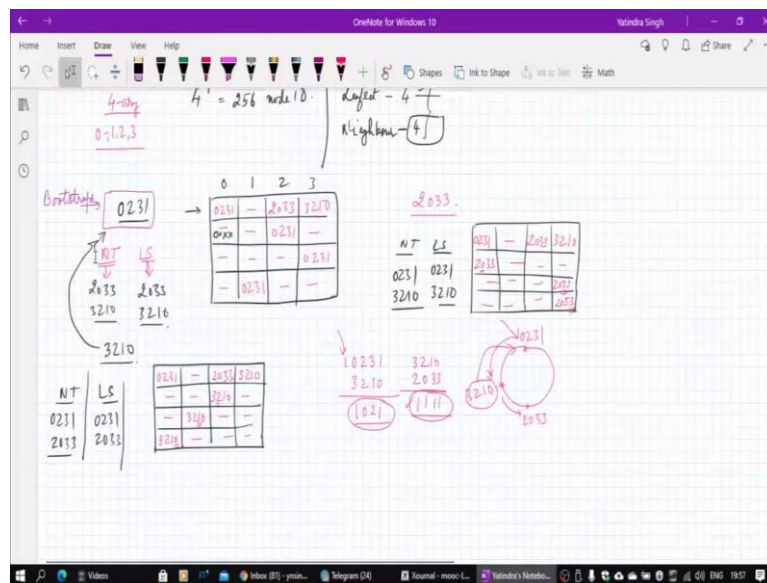 OneNote for Windows 10
Yatindra Singh
Home Insert Draw View Help
Share
Shapes
Ink to Shape
Ink to Text
Math
4-ary
0-,1,2,3
= 256 node ID.
Leafset - 4
Neighbour - 4
Bootstrap
0231
NT LS
2033 2033
3210 3210
3210
0 1 2 3
0231 - 2033 3210
00xx - 0231 -
- - - 0231
- 0231 - -
2033.
NT LS
0231 0231
3210 3210
0231 - 2033 3210
2033 - - -
- - - 2033
- - - 2033
NT LS
0231 0231
2033 2033
0231 - 2033 3210
- - 3210 -
- 3210 - -
3210 - - -
10231
3210
1021
3210
2033
1111
0231
3210
2033
Videos
Inbox (81) - ynsin...
Telegram (24)
Xournal - mooc-L...
Yatindra's Notebo...
ENG 19:57